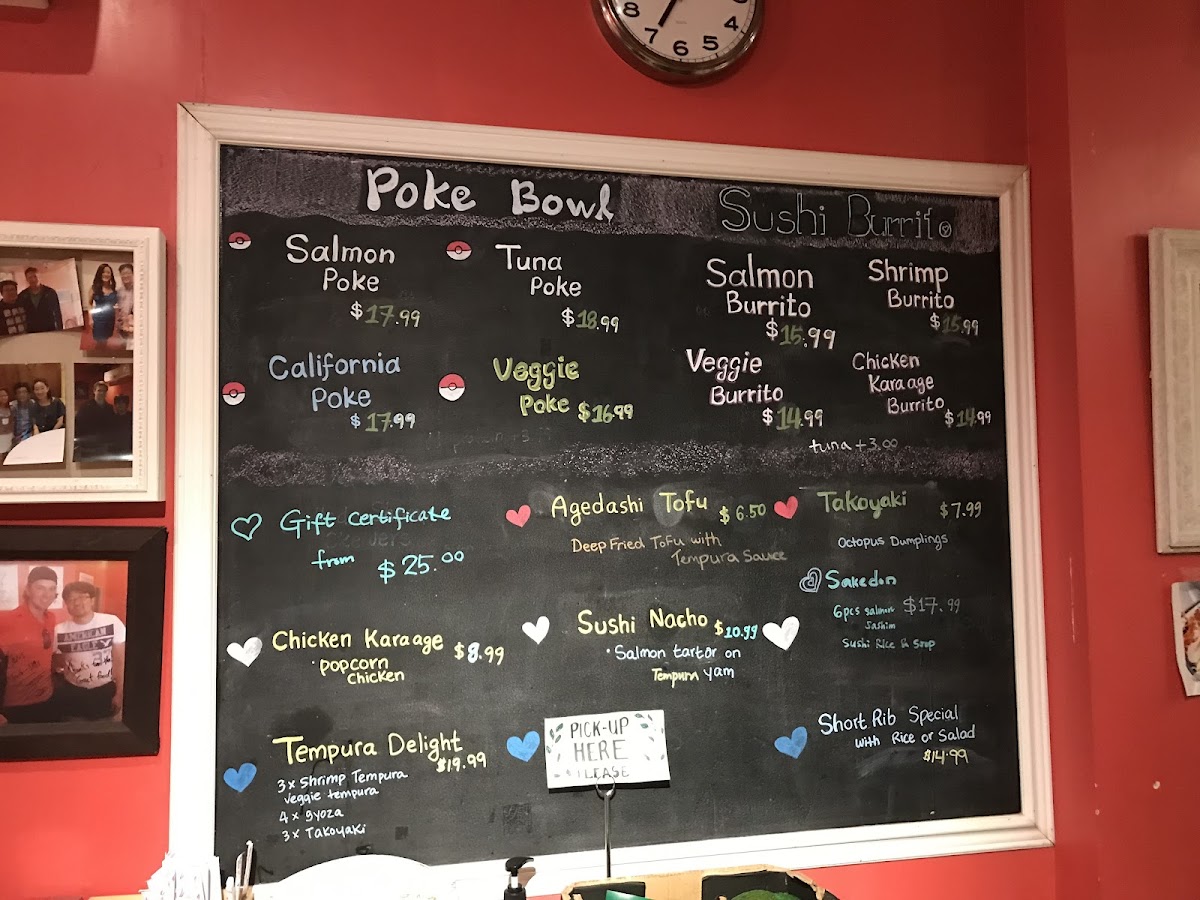 8
7
6
5
4
Poke Bowl
Sushi Burrito
Salmon
Poke
$17.99
Tuna
Poke
$18.99
Salmon
Burrito
$15.99
Shrimp
Burrito
$15.99
California
Poke
$17.99
Veggie
Poke $16.99
Veggie
Burrito
$14.99
Chicken
Karaage
Burrito
$14.99
tuna +3.00
Gift Certificate
from $25.00
Agedashi Tofu $6.50
Deep Fried Tofu with
Tempura Sauce
Takoyaki $7.99
Octopus Dumplings
Sakedon
6pcs salmon $17.99
Sashim
Sushi Rice & Soup
Chicken Karaage $8.99
· popcorn
chicken
Sushi Nacho $10.99
· Salmon tartar on
Tempura yam
Tempura Delight
$19.99
3x Shrimp Tempura
veggie tempura
4x gyoza
3x Takoyaki
PICK-UP
HERE
PLEASE
Short Rib Special
with Rice or Salad
$14.99
AMERICAN
EAGLE